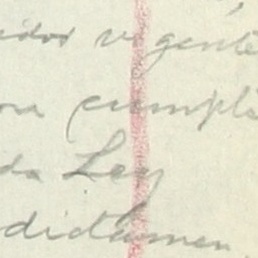 idos vigente
ra cumpla
da Ley
dictamen